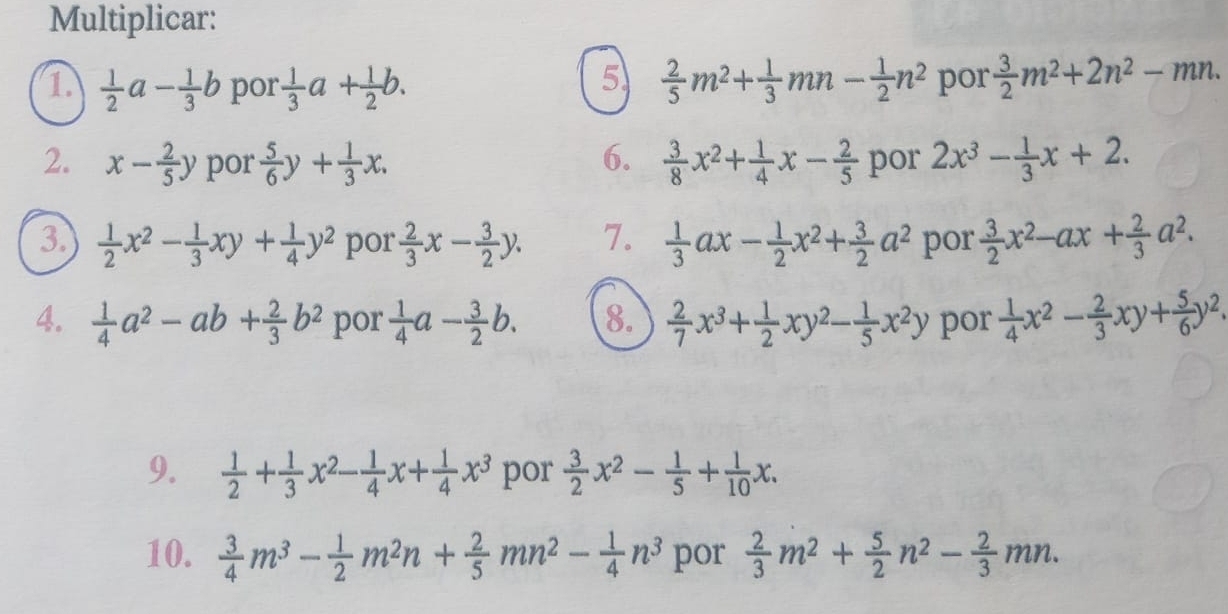 Multiplicar:
1. 1/2 a − 1/3 b por 1/3 a + 1/2 b.
2. x − 2/5 y por 5/6 y + 1/3 x.
3. 1/2 x² − 1/3 xy + 1/4 y² por 2/3 x − 3/2 y.
4. 1/4 a² − ab + 2/3 b² por 1/4 a − 3/2 b.
5. 2/5 m² + 1/3 mn − 1/2 n² por 3/2 m² + 2n² − mn.
6. 3/8 x² + 1/4 x − 2/5 por 2x³ − 1/3 x + 2.
7. 1/3 ax − 1/2 x² + 3/2 a² por 3/2 x² − ax + 2/3 a².
8. 2/7 x³ + 1/2 xy² − 1/5 x²y por 1/4 x² − 2/3 xy + 5/6 y².
9. 1/2 + 1/3 x² − 1/4 x + 1/4 x³ por 3/2 x² − 1/5 + 1/10 x.
10. 3/4 m³ − 1/2 m²n + 2/5 mn² − 1/4 n³ por 2/3 m² + 5/2 n² − 2/3 mn.